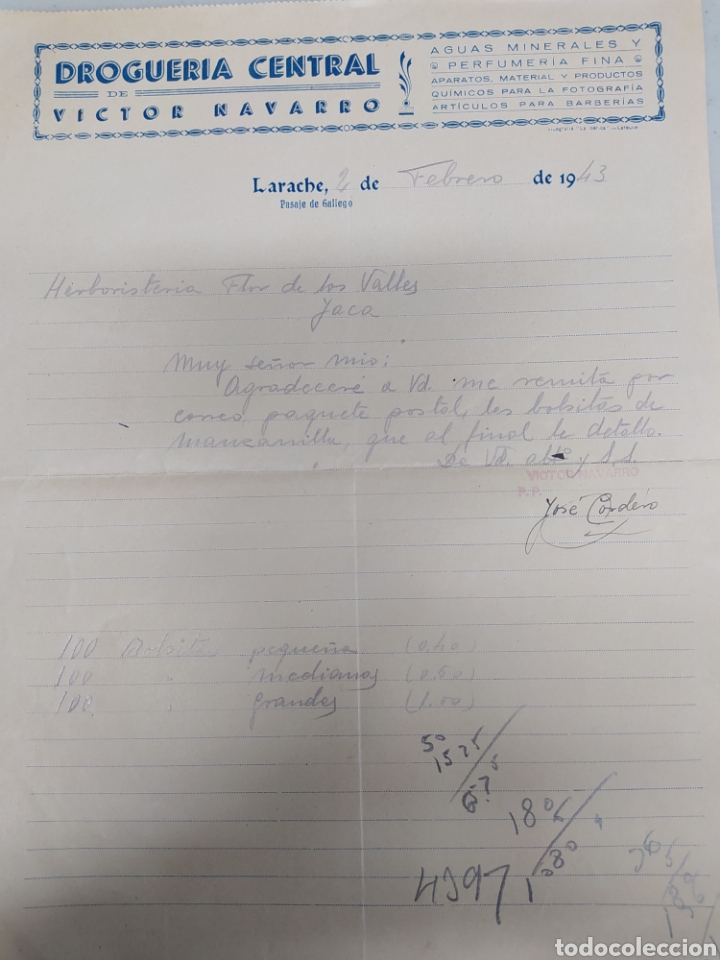 DROGUERIA CENTRAL
DE
VICTOR NAVARRO
AGUAS MINERALES Y
PERFUMERÍA FINA
APARATOS, MATERIAL Y PRODUCTOS
QUÍMICOS PARA LA FOTOGRAFÍA
ARTÍCULOS PARA BARBERÍAS
Larache, 2 de Febrero de 1943
Pasaje de Gallego
Herboristeria Flor de los Valles
Jaca
Muy señor mio:
Agradeceré a Vd. me remita por
correo paquete postal, las bolsitas de
manzanilla, que al final le detallo.
De Vd. y S.S.
VICTOR NAVARRO
P.P.
José Cordero
100 Bolsita pequeña (0.40)
100 " medianas (0.60)
100 " grandes (1.00)
todocoleccion